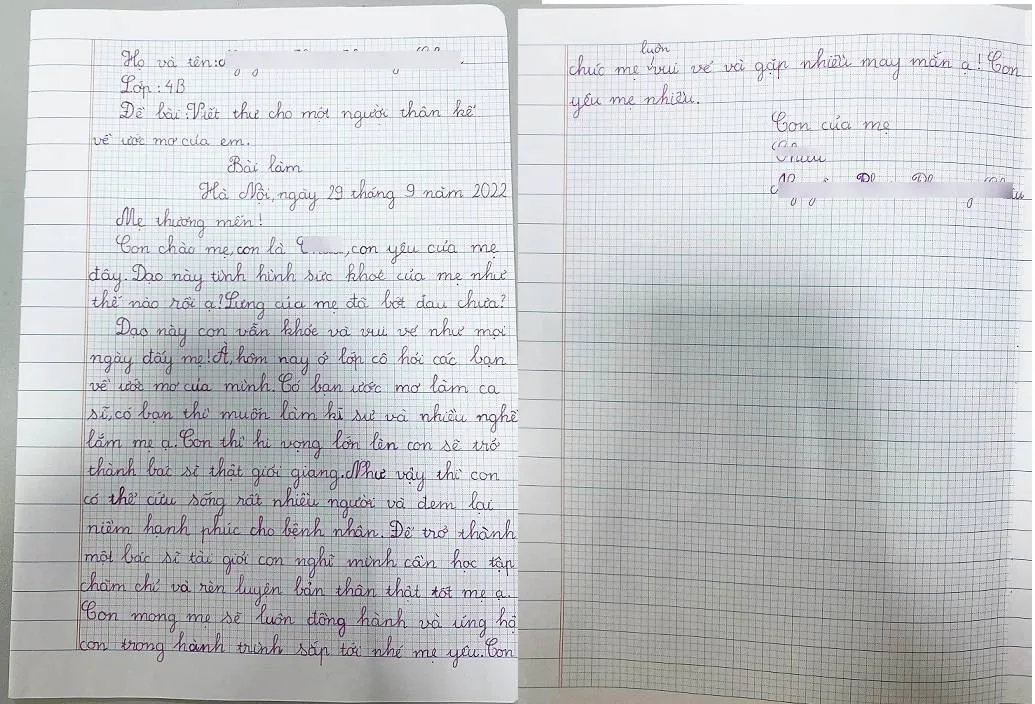 Họ và tên:
Lớp: 4B
Đề bài: Viết thư cho một người thân kể
về ước mơ của em.
Bài làm
Hà Nội, ngày 29 tháng 9 năm 2022
Mẹ thương mến!
Con chào mẹ, con là , con yêu của mẹ
đây. Dạo này tình hình sức khoẻ của mẹ như
thế nào rồi ạ! Lưng của mẹ đã bớt đau chưa?
Dạo này con vẫn khỏe và vui vẻ như mọi
ngày đấy mẹ! À, hôm nay ở lớp cô hỏi các bạn
về ước mơ của mình. Có bạn ước mơ làm ca
sĩ, có bạn thì muốn làm kĩ sư và nhiều nghề
lắm mẹ ạ. Con thì hi vọng lớn lên con sẽ trở
thành bác sĩ thật giỏi giang. Như vậy thì con
có thể cứu sống rất nhiều người và đem lại
niềm hạnh phúc cho bệnh nhân. Để trở thành
một bác sĩ tài giỏi con nghĩ mình cần học tập
chăm chỉ và rèn luyện bản thân thật tốt mẹ ạ.
Con mong mẹ sẽ luôn đồng hành và ủng hộ
con trong hành trình sắp tới nhé mẹ yêu. Con
chúc mẹ luôn vui vẻ và gặp nhiều may mắn ạ! Con
yêu mẹ nhiều.
Con của mẹ